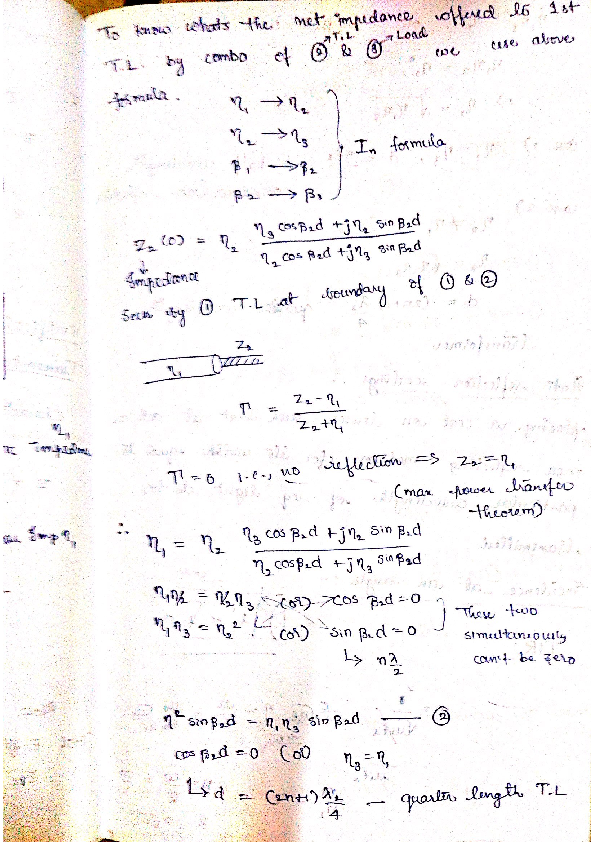 To know whats the net impedance offered to 1st
T.L. by combo of ② → T.L & ③ → Load we use above
formula.
η₁ → η₂
η₂ → η₃
β₁ → β₂
β₂ → β₃
} In formula
Z₂(0) = η₂ (η₃ cos β₂d + jη₂ sin β₂d) / (η₂ cos β₂d + jη₃ sin β₂d)
↓
Impedance
seen by ① T.L at boundary of ① & ②
Z₂
η₁
Γ = (Z₂ - η₁) / (Z₂ + η₁)
Γ = 0 i.e., no reflection => Z₂ = η₁
(max power transfer
theorem)
∴ η₁ = η₂ (η₃ cos β₂d + jη₂ sin β₂d) / (η₂ cos β₂d + jη₃ sin β₂d)
η₁η₂ = η₂η₃ (or) cos β₂d = 0
η₁η₃ = η₂² (or) sin β₂d = 0
} These two
simultaneously
can't be zero
↳ nλ/2
η² sin β₂d = η₁η₃ sin β₂d — ②
cos β₂d = 0 (or) η₃ = η₁
↳ d = (2n+1) λ₂/4 — quarter length T.L